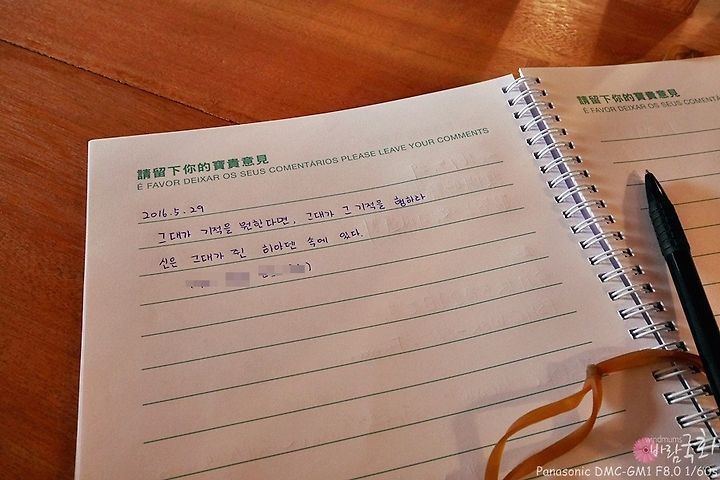 請留下你的寶貴意見
É FAVOR DEIXAR OS SEUS COMENTÁRIOS PLEASE LEAVE YOUR COMMENTS
2016.5.29
그대가 기적을 원한다면, 그대가 그 기적을 행하라
신은 그대가 쥔 히아덴 속에 있다.
請留下你的寶貴意見
É FAVOR DEIXAR OS SEUS COMENTÁ
windmums
바람국화
Panasonic DMC-GM1 F8.0 1/60s